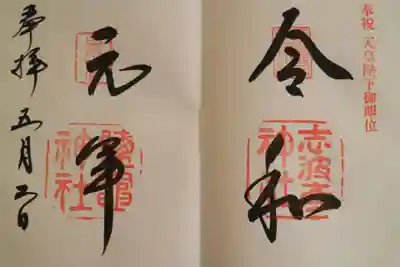 奉祝 天皇陛下御即位
令和
志波彦
神社
元年
鹽竈
神社
奉拝 五月五日